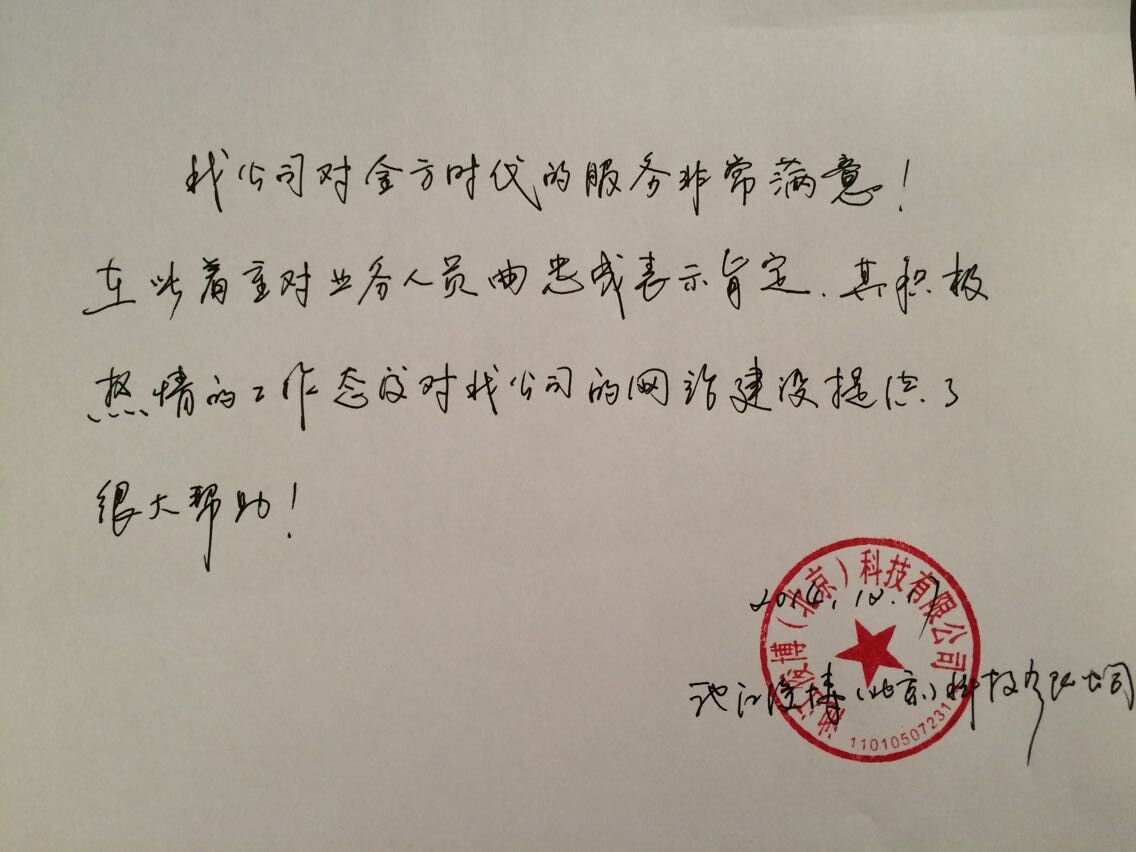 我公司对金方时代的服务非常满意！
在此着重对业务人员曲忠成表示肯定，其积极
热情的工作态度对我公司的网站建设提供了
很大帮助！
2014.12.17
（北京）科技有限公司
博（北京）科技有限公司
11010507231